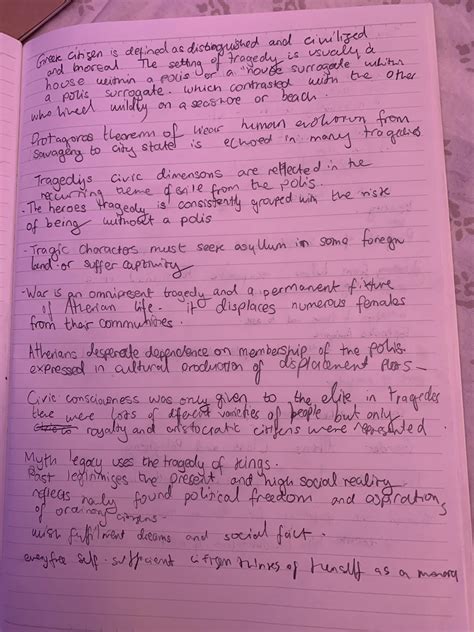 Greek Citizen is defined as distinguished and civilized
and The setting of tragedy is usually a
house within a polis or a house surrogate within
a polis surrogate. which contrasted with the other
who lived wildly on a seashore or beach.
Protagoras theorem of linear human evolution from
savagery to city state is echoed in many tragedies
Tragedys civic dimensons are reflected in the
recurring theme of exile from the polis.
- The heroes tragedy is consistently grouped with the risk
of being without a polis
- Tragic Characters must seek asylum in some foregn
land or suffer captivity
- War is an omnipresent tragedy and a permanent fixture
of Athenian life. it displaces numerous females
from their communities.
Athenians desperate dependence on membership of the polis
expressed in cultural production of displacement plots -
Civic consciousness was only given to the elite in tragedes
there were lots of different varieties of people but only
royalty and aristocratic citizens were represented.
Myth legacy uses the tragedy of kings.
Past legitimises the present and high social reality
reflects newly found political freedom and aspirations
of ordinary citizens.
wish fulfilment dreams and social fact.
every free self-sufficient citizen thinks of himself as a monarch